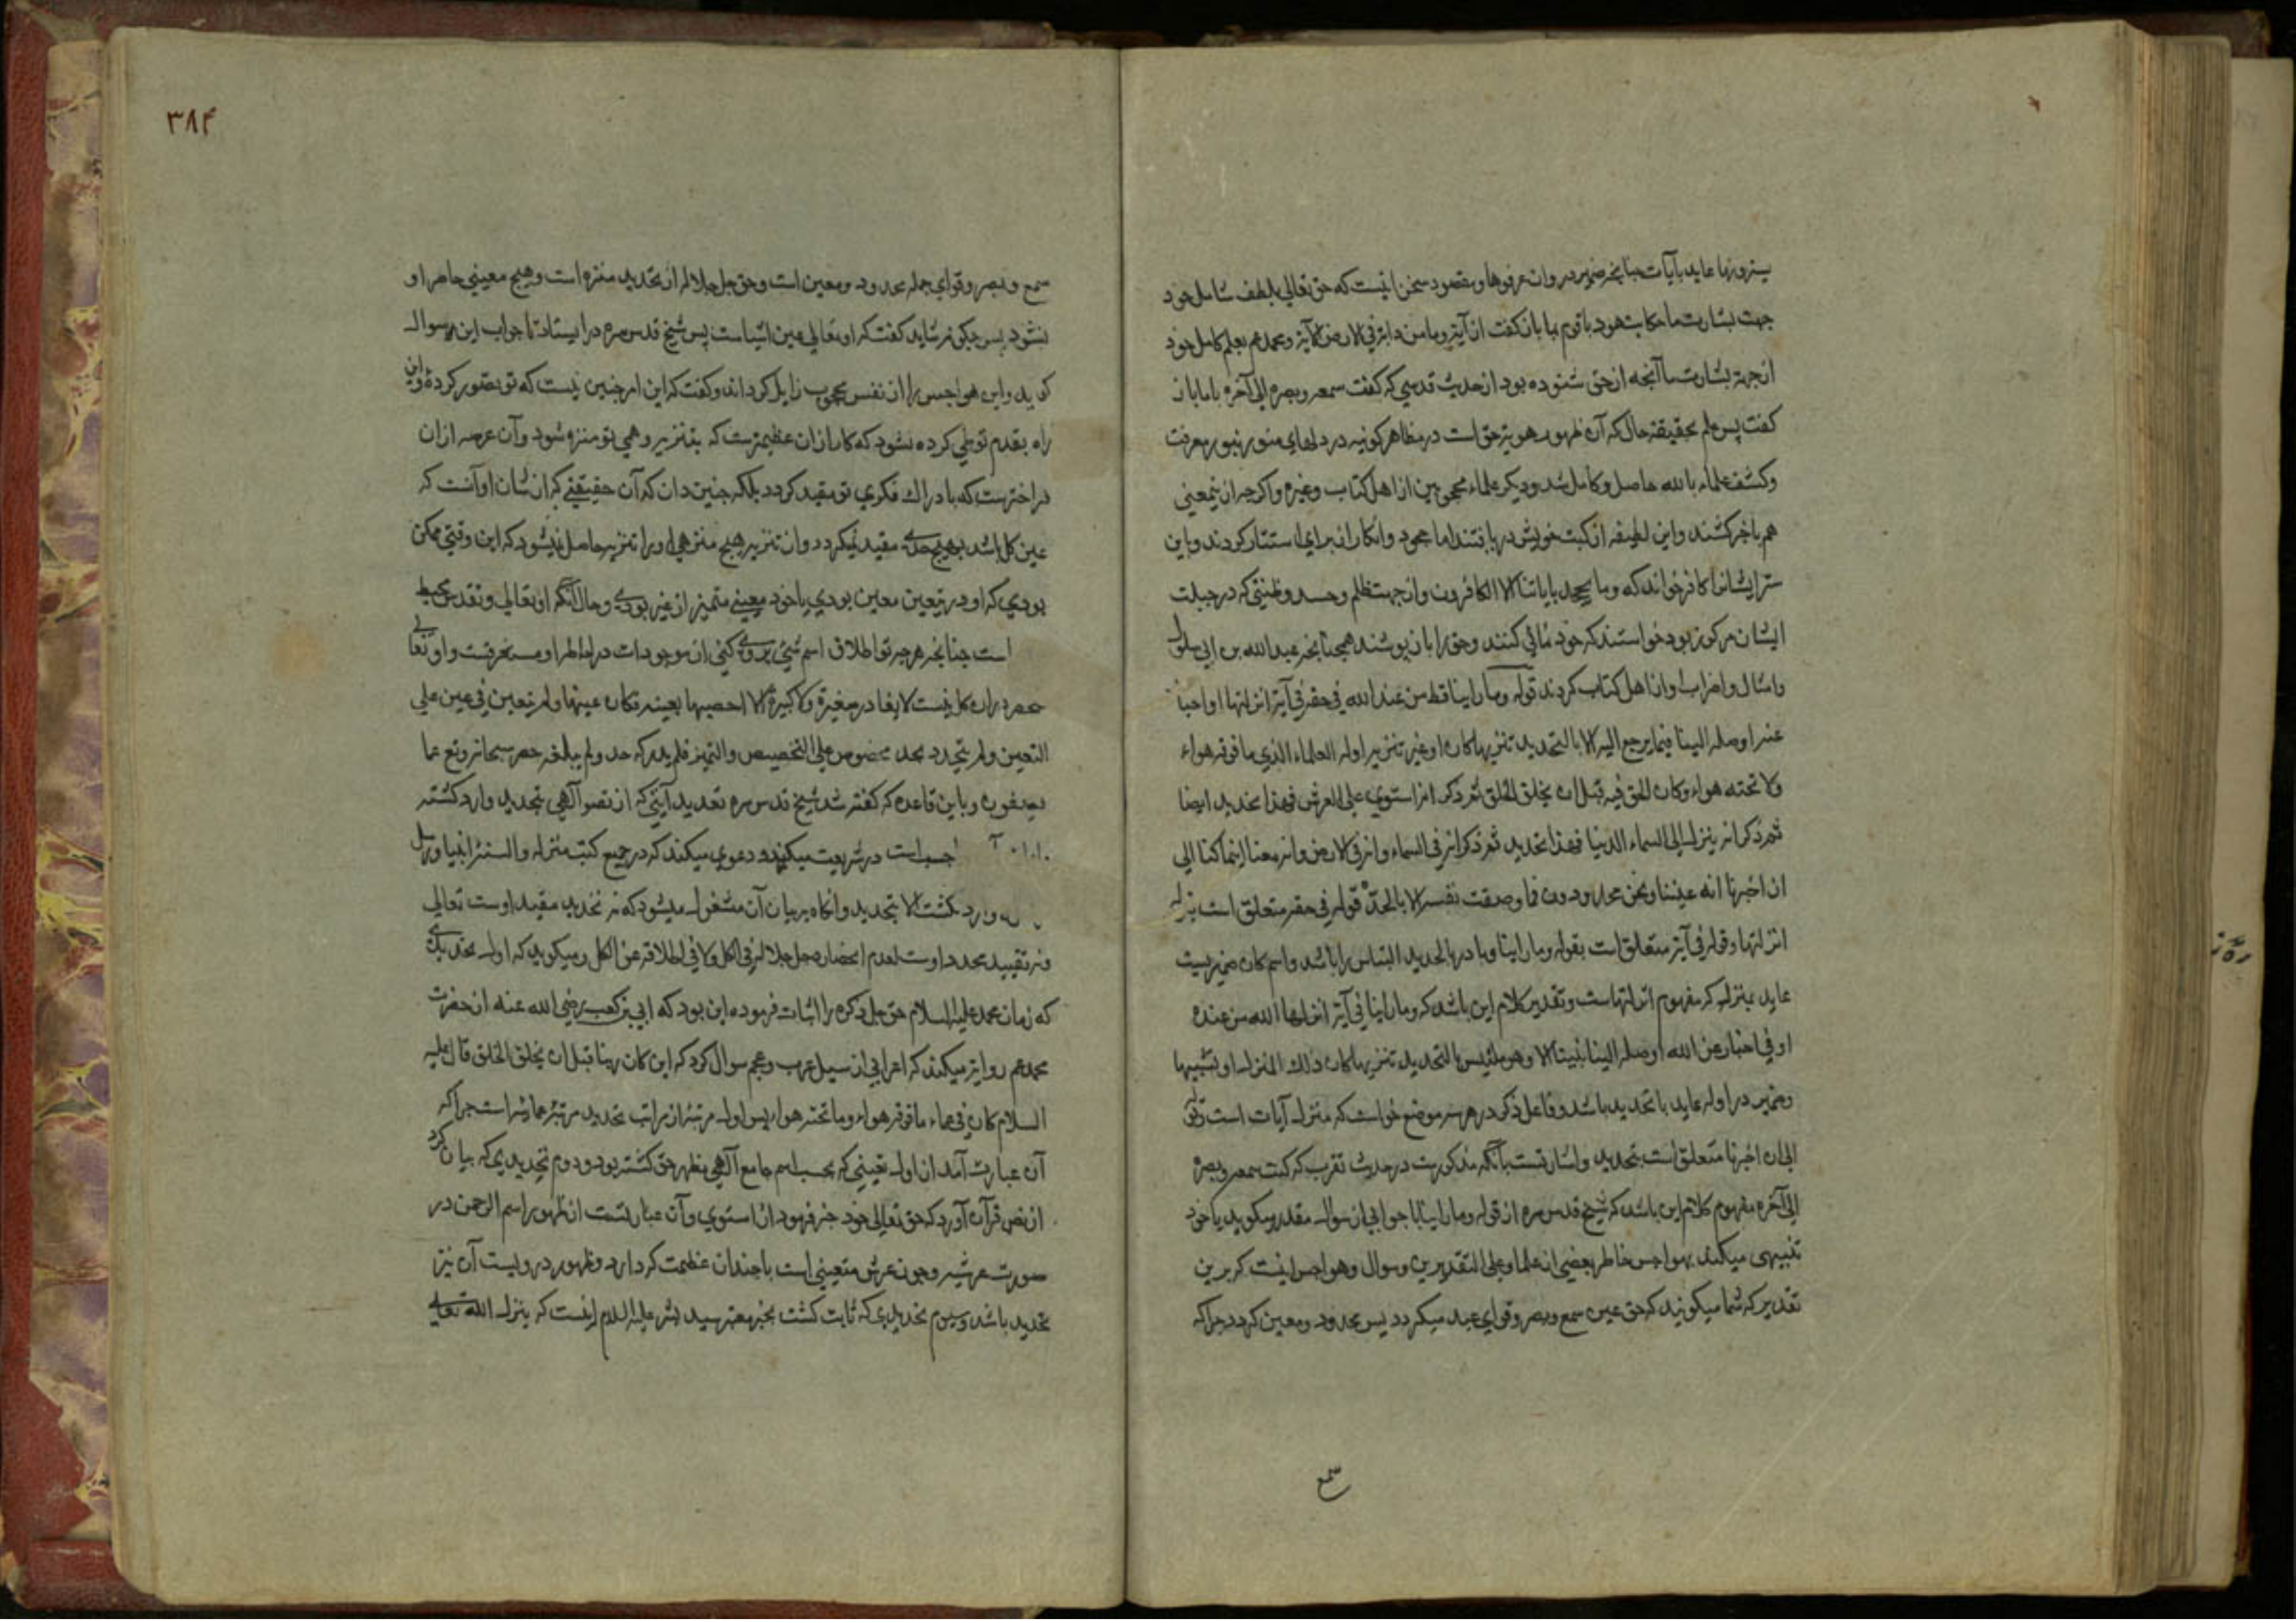 یسترونها عاید بآیات چنانچه ضمیر در وان عرفوها و مقصود سخن اینست که حق تعالی بلطف شامل خود
جهت بشارت ما حکایت هود با قوم بما بازکفت از آیة وما من دابة فی الارض الآیة ومحمد عم بعلم کامل خود
از جهة بشارت ما آنجه از حق شنوده بود از حدیث قدسی که کفت سمعه وبصره الی آخره با ما باز
کفت پس علم بحقیقة حال که آن ظهور هویة حق است در مظاهر کونیه در دلهای منور بنور معرفت
وکشف علماء بالله حاصل وکامل شد ودیکر علماء محجوبین از اهل کتاب وغیره واکرچه ازین معنی
هم باخبر کشتند واین لطیفه از کتب خویش دریافتند اما جحود وانکار انرا برای استتار کردند وباین
ستر ایشانرا کافر خواند که وما یجحد بایاتنا الا الکافرون واز جهت ظلم وحسد وظنتی که در جبلت
ایشان مرکوز بود خواستند که خود نمائی کنند وحق را بان پوشند همچنانچه عبدالله بن ابی سلول
وامثال واضراب او از اهل کتاب کردند قوله وما راینا قط من عند الله فی حقه فی آیة انزلها او اخبار
عنه اوصله الینا فیما یرجع الیه الا بالتحدید تنزیها کان او غیر تنزیه اوله العماء الذی ما فوقه هواء
ولا تحته هواء وکان الحق فیه قبل ان یخلق الخلق ثم ذکر انه استوی علی العرش فهذا تحدید ایضا
ثم ذکر انه ینزل الی السماء الدنیا فهذا تحدید ثم ذکر انه فی السماء وانه فی الارض وانه معنا اینما کنا الی
ان اخبرنا انه عیننا ونحن محدودون فما وصفت نفسه الا بالحد قوله فی حقه متعلق است بنزله
انزلها وقوله فی آیة متعلق است بقوله وما راینا وبا در بالتحدید التباس را باشد واسم کان ضمیریست
عاید بمنزله که مفهوم انزلهاست وتقدیر کلام این باشد که وما راینا فی آیة انزلها الله من عنده
او فی اخبار عن الله اوصله الینا نبینا الا وهو ملتبس بالتحدید تنزیها کان ذلک المنزل او تشبیها
وضمیر در اوله عاید با تحدید باشد وفاعل ذکر در هر سه موضع خواست که منزل آیات است قوله
الی ان اخبرنا متعلق است بتحدید واشارتست بآنکه مذکورست در حدیث تقرب که کنت سمعه وبصره
الی آخره مفهوم کلام این باشد که شیخ قدس سره از قوله وما راینا با جوابی از سوال مقدر میکوید یا خود
تنبیهی میکند بهواجس خاطر بعضی از علما وعلی التقدیرین وسوال وهواجس اینست که برین
تقدیر که شما میکویند که حق عین سمع وبصر وقوای عبد میکردد پس محدود ومعین کردد جراکه
سمع
۳۸۴
سمع وبصر وقوای جمله محدود ومعین است وحق جل جلاله از تحدید منزه است وهیچ معینی حاصر او
نشود پس چکونه شاید کفت که او تعالی عین اشیاست پس شیخ قدس سره در ایستاد تا جواب این سوال
کوید واین هواجس را از نفس محجوب زایل کرداند وکفت که این امر چنین نیست که تو تصور کردهٔ واین
راه بقدم تو طی کرده نشود که کار ازان عظیمترست که بتنزیه وهمی تو منزه شود وآن عرصه ازان
فراخترست که بادراک فکری تو مقید کردد بلکه چنین دان که آن حقیقتی که از شان او آنست که
عین کل باشد بهیچ حدی مقید نیکردد وان تنزیه هیچ منزهی اورا تنزیه حاصل نیشود که این وقتی ممکن
بودی که او در تعین معین بودی یا خود معینی متمیز از غیر بودی وحال آنکه او تعالی وتقدس محیط
است چنانچه هرچه تو اطلاق اسم شیئی بروی کنی از موجودات در احاطه او مستغرقست واو تعالی
حصر دران کل نیست لا یغادر صغیرة ولا کبیرة الا احصیها بعینه فکان عینها ولم یتعین فی عین علی
التعین ولم یتحدد بحد مخصوص علی التخصیص والتمیز فلم یدرکه حد ولم یبلغه حصر سبحانه وتع عما
یصفون وباین قاعده که کفته شد شیخ قدس سره تعدید آیتی که از نصو آلهی بتحدید وارد کشته
اجب است در شریعت میکند ودعوی میکند که در جمیع کتب منزله والسنه انبیا ورسل
وارد نکشت الا بتحدید وانکاه بر بیان آن مشغول میشود که نه تحدید مقید اوست تعالی
ونه تقیید محدد اوست لعدم انحصاره جل جلاله فی الکل ولا فی اطلاقه عن الکل ومیکوید که اول تحدیدی
که زمان محمد علیه السلام حق جل ذکره را اثبات فرموده این بود که ابی بن کعب رضی الله عنه از حضرت
محمد عم روایة میکند که اعرابی از سیل عرب وعجم سوال کرد که این کان ربنا قبل ان یخلق الخلق قال علیه
السلام کان فی عماء ما فوقه هواء وما تحته هواء پس اول مرتبه از مراتب تحدید مرتبهٔ عمائیه است جراکه
آن عبارت آمد از اول تعینی که بحسب اسم جامع آلهی مظهر حق کشته بود ودوم تحدیدی که بیان کرد
از نص قرآن آورد که حق تعالی خود خبر فرمود از استوی وآن عبارتست از ظهور اسم الرحمن در
صورت عرشیه وچون عرش متعینی است باچندان عظمت که دارد وظهور درویست آن نیز
تحدید باشد وسیوم تحدیدی که ثابت کشت بخبر معتبر سید بشر علیه السلام اینست که ینزل الله تعالی